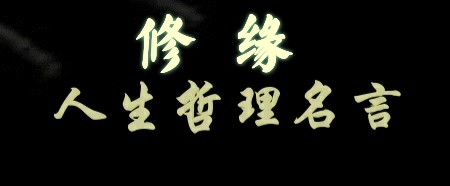 修 缘
人生哲理名言